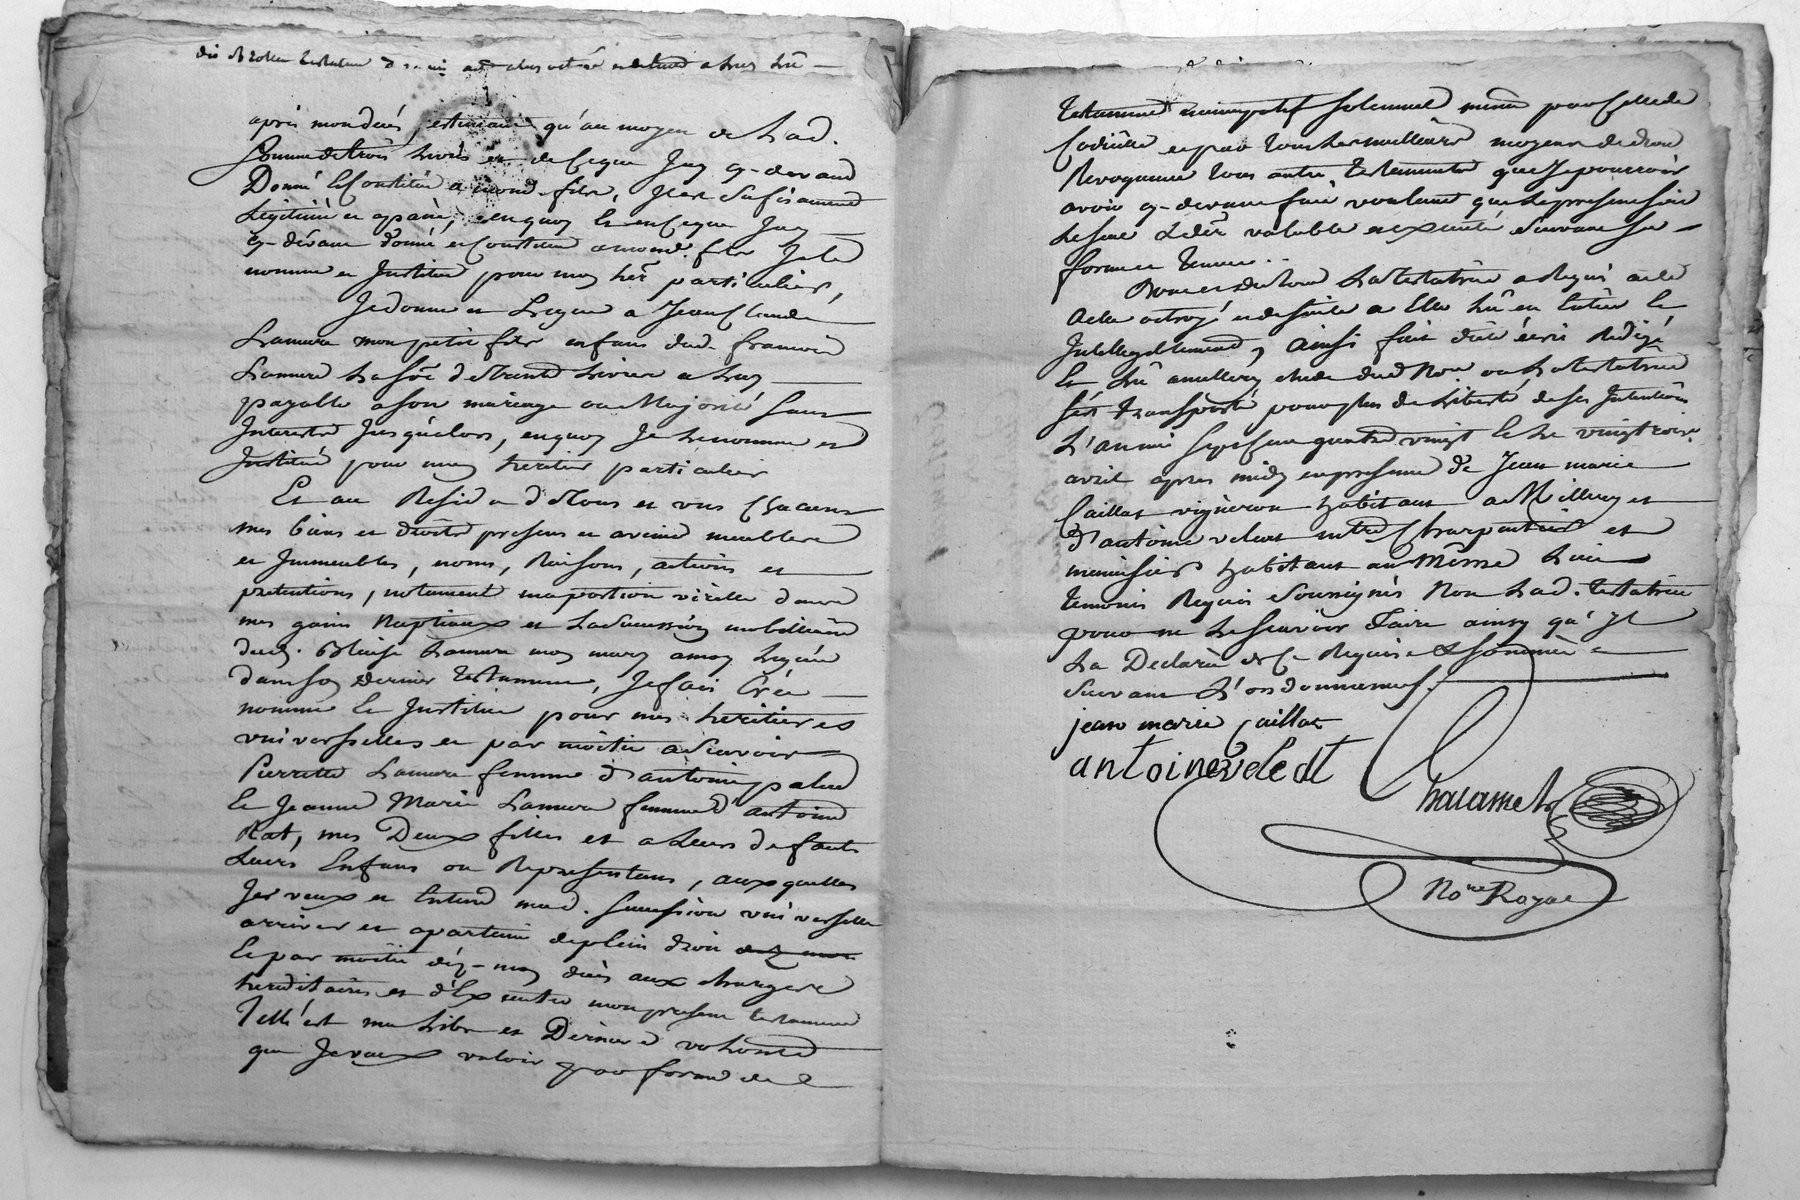 après mon deces, estimant qu'au moyen de lad.
Somme de trois livres et de ce que j'ay cy-devant
Donné et Constitué a mond. fils, Il est sufisamment
Légitimé et apané, en quoy et en ce que j'ay
cy-dévant donné et Constitué a mond. fils Je le
nomme et Institue pour mon her. particulier,
Je donne et Legue a Jean Claude
Lamure mon petit fils enfant dud. francois
Lamure la sôe de trente Livres a luy
payable a son mariage ou Majorité sans
Interests Jusqu'alors, en quoy Je le nomme et
Institue pour mon heritier particulier
Et au Residu de tous et uns Chacuns
mes biens et droits presens et avenir meubles
et Immeubles, noms, Raisons, actions et
pretentions, notament ma portion virille dans
mes gains Nuptiaux et la Succession mobilliaire
dud. Blaise Lamure mon mary a moy leguée
dans son dernier testament, Je fais Crée
nomme et Institue pour mes heritieres
universelles et par moitié a Scavoir
Pierrette Lamure femme d'antoine
et Jeanne Marie Lamure femme d'antoine
Rat, mes Deux filles et a leurs defauts
Leurs Enfans ou Representans, aux quelles
Je veux et Entend mad. Succession universelle
arriver et apartenir de plein droit
et par moitié déz-mon décès aux charges
hereditaires et d'Exécuter mon present testament
Telle est ma Libre et Derniere volonté
que Je veux valoir par forme de
testament nuncupatif solemnel même par Celle de
Codicille et par tous les meilleurs moyens de droit
Revoquant tous autres testaments que Je pourrois
avoir cy-devant fait voulant que le present soit
le seul valable et exécuté Suivant Sa
forme et teneur..
Dont et du tout La testatrice a Requis acte
acte octroyé et desuite a Elle lû en Entier et
Intelligiblement, ainsi fait dicté écrit Redigé
et lû a millery etude dud Nore ou La testatrice
s'est transporté pour plus de Liberté de ses Intentions
L'an mil sept cent quatre vingt et le vingt trois
avril apres midy en presence de Jean marie
Caillat vigneron habitant a Millery et
d'antoine veledt mtre Charpentier et
menuisier habitant au Même Lieu
temoins Requis Soussignés Non Lad. testatrice
pour ne le Scavoir faire ainsy qu'Il
La Declaré de ce Requise & sommée
Suivant L'ordonnance.
jean marie caillat
antoine veledt
Chalamel
Nore Royal